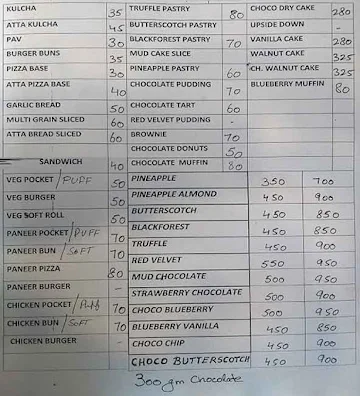 KULCHA 35
ATTA KULCHA 45
PAV 30
BURGER BUNS 35
PIZZA BASE 30
ATTA PIZZA BASE 40
GARLIC BREAD 50
MULTI GRAIN SLICED 60
ATTA BREAD SLICED 60
SANDWICH 40
VEG POCKET / PUFF 50
VEG BURGER 50
VEG SOFT ROLL 50
PANEER POCKET / PUFF 70
PANEER BUN / SOFT 70
PANEER PIZZA 80
PANEER BURGER -
CHICKEN POCKET / Puff 70
CHICKEN BUN / SOFT 70
CHICKEN BURGER -
TRUFFLE PASTRY 80
BUTTERSCOTCH PASTRY
BLACKFOREST PASTRY 70
MUD CAKE SLICE
PINEAPPLE PASTRY 60
CHOCOLATE PUDDING 70
CHOCOLATE TART 60
RED VELVET PUDDING -
BROWNIE 70
CHOCOLATE DONUTS 50
CHOCOLATE MUFFIN 80
CHOCO DRY CAKE 280
UPSIDE DOWN -
VANILLA CAKE 280
WALNUT CAKE 325
CH. WALNUT CAKE 325
BLUEBERRY MUFFIN 80
PINEAPPLE 350 700
PINEAPPLE ALMOND 450 900
BUTTERSCOTCH 450 850
BLACKFOREST 450 850
TRUFFLE 450 900
RED VELVET 550 950
MUD CHOCOLATE 500 950
STRAWBERRY CHOCOLATE 500 900
CHOCO BLUEBERRY 500 950
BLUEBERRY VANILLA 450 850
CHOCO CHIP 450 900
CHOCO BUTTERSCOTCH 450 900
300 gm Chocolate